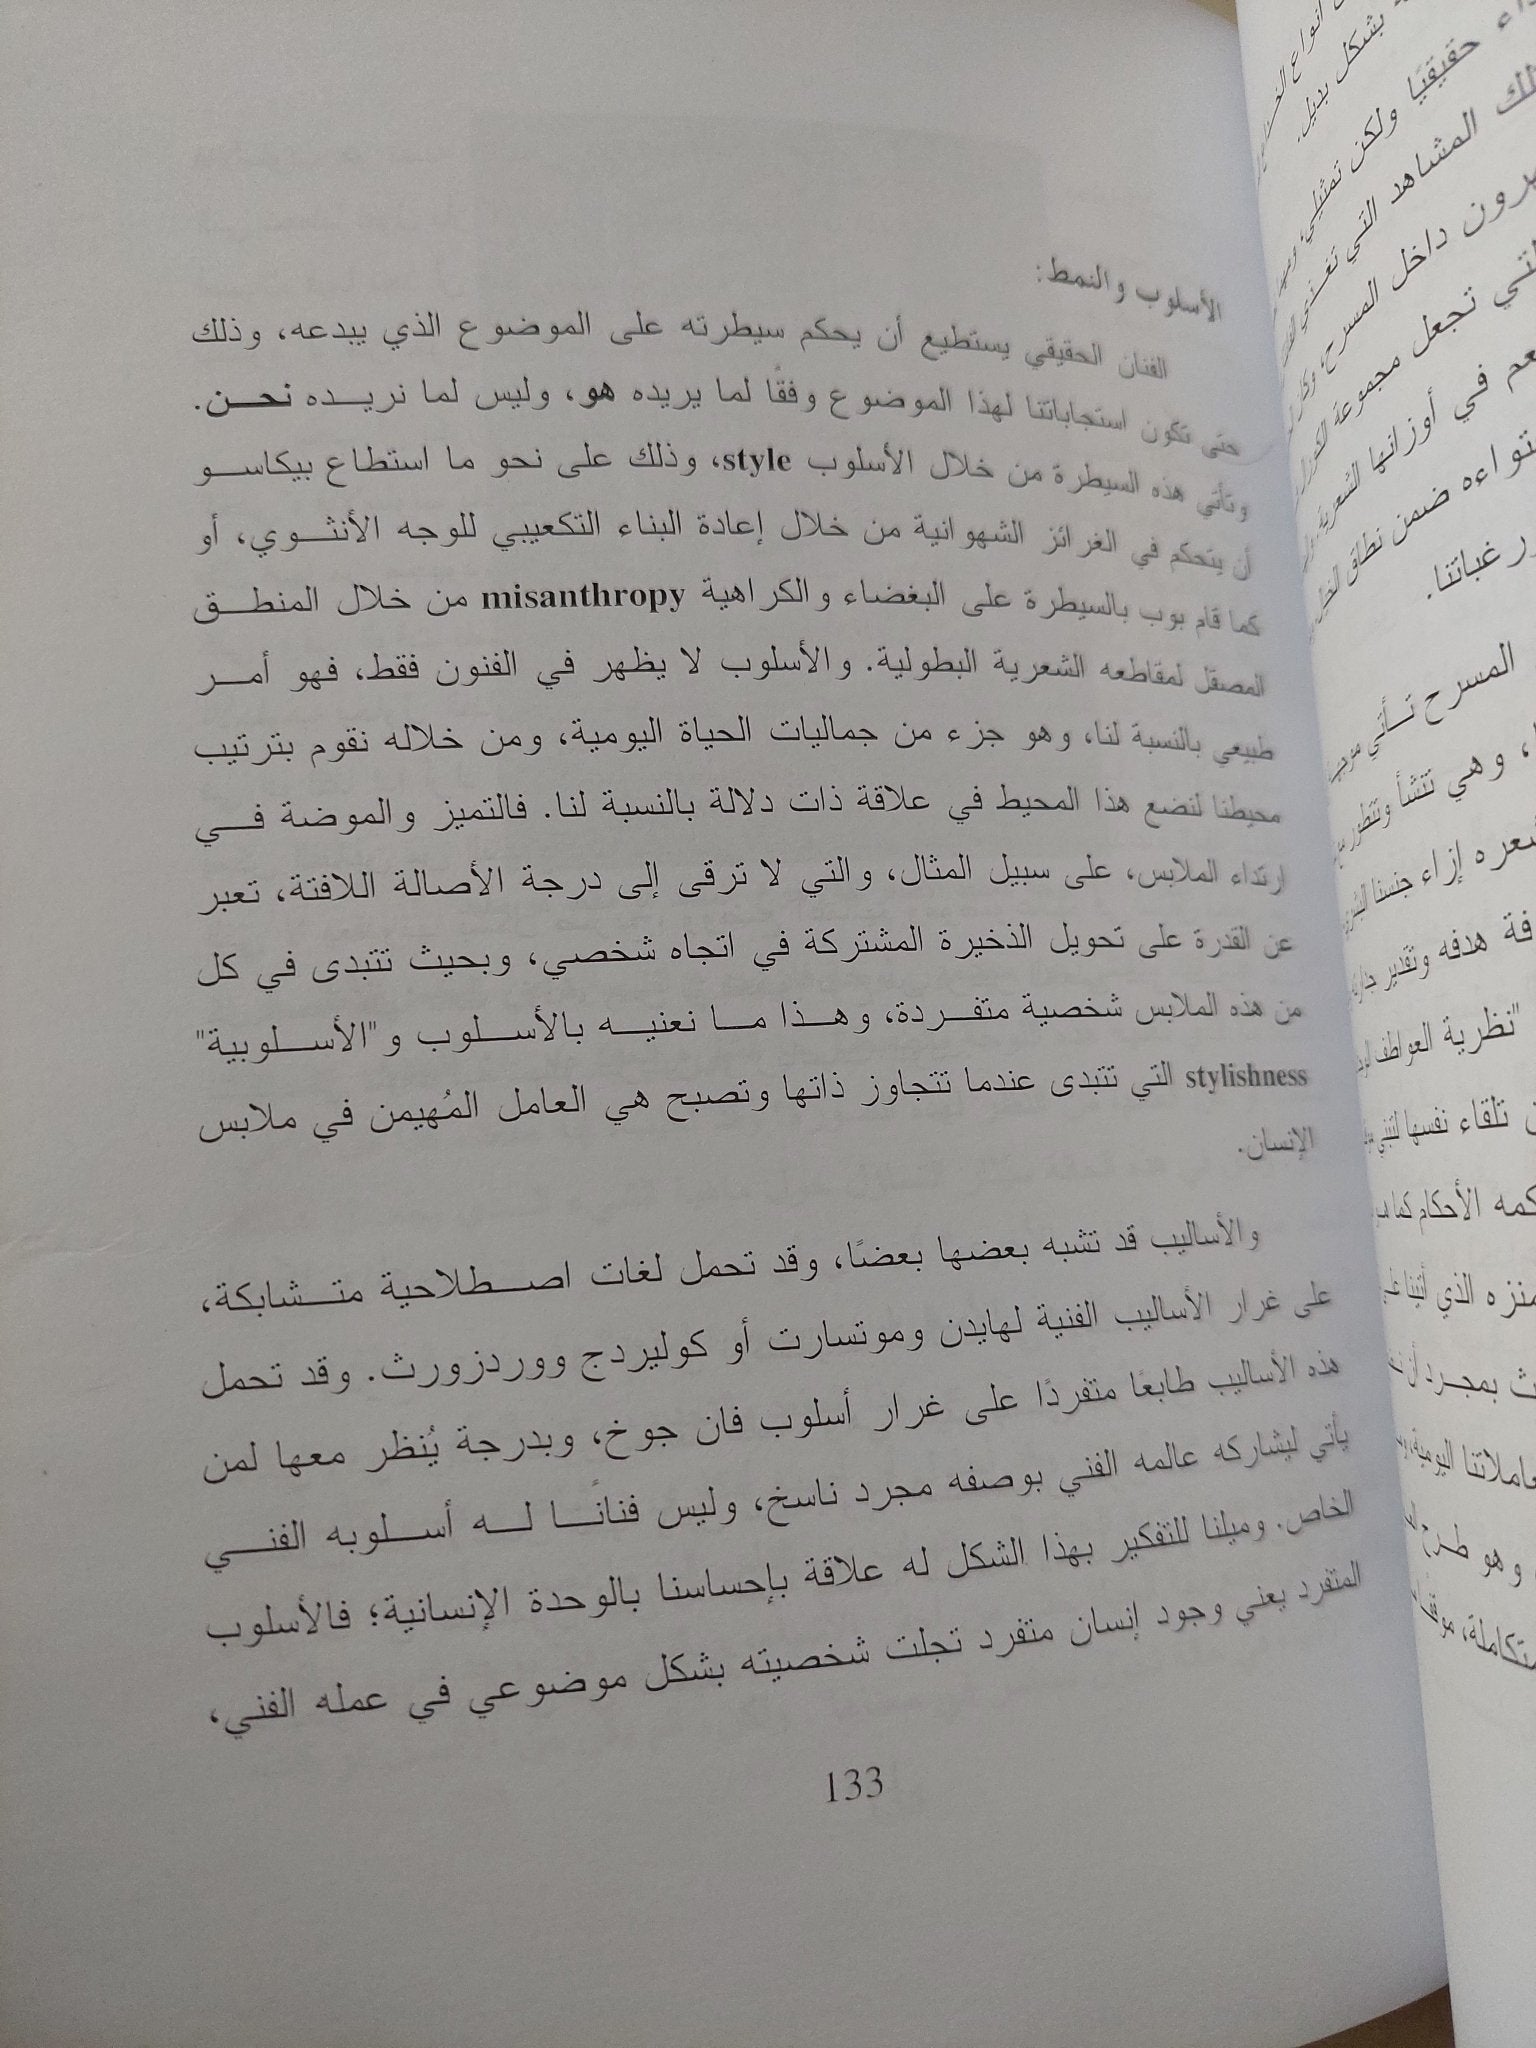 الأسلوب والنمط:
الفنان الحقيقي يستطيع أن يحكم سيطرته على الموضوع الذي يبدعه، وذلك
حتى تكون استجاباتنا لهذا الموضوع وفقًا لما يريده هو، وليس لما نريده نحن.
وتأتي هذه السيطرة من خلال الأسلوب style، وذلك على نحو ما استطاع بيكاسو
أن يتحكم في الغرائز الشهوانية من خلال إعادة البناء التكعيبي للوجه الأنثوي، أو
كما قام بوب بالسيطرة على البغضاء والكراهية misanthropy من خلال المنطق
المصقل لمقاطعه الشعرية البطولية. والأسلوب لا يظهر في الفنون فقط، فهو أمر
طبيعي بالنسبة لنا، وهو جزء من جماليات الحياة اليومية، ومن خلاله نقوم بترتيب
محيطنا لنضع هذا المحيط في علاقة ذات دلالة بالنسبة لنا. فالتميز والموضة في
ارتداء الملابس، على سبيل المثال، والتي لا ترقى إلى درجة الأصالة اللافتة، تعبر
عن القدرة على تحويل الذخيرة المشتركة في اتجاه شخصي، وبحيث تتبدى في كل
من هذه الملابس شخصية متفردة، وهذا ما نعنيه بالأسلوب و"الأسلوبية"
stylishness التي تتبدى عندما تتجاوز ذاتها وتصبح هي العامل المُهيمن في ملابس
الإنسان.
والأساليب قد تشبه بعضها بعضًا، وقد تحمل لغات اصطلاحية متشابكة،
على غرار الأساليب الفنية لهايدن وموتسارت أو كوليردج ووردزورث. وقد تحمل
هذه الأساليب طابعًا متفردًا على غرار أسلوب فان جوخ، وبدرجة يُنظر معها لمن
يأتي ليشاركه عالمه الفني بوصفه مجرد ناسخ، وليس فنانًا له أسلوبه الفني
الخاص. وميلنا للتفكير بهذا الشكل له علاقة بإحساسنا بالوحدة الإنسانية؛ فالأسلوب
المتفرد يعني وجود إنسان متفرد تجلت شخصيته بشكل موضوعي في عمله الفني،
133
أنواع
بشكل بديل.
حقيقيًا ولكن تمثيلي،
المشاهد التي
داخل المسرح، وكل
تجعل مجموعة
في أوزانها الشعرية،
ضمن نطاق
رغباتنا.
المسرح تأتي
وهي تنشأ وتتطور
إزاء جنسنا
هدفه وتقدير
"نظرية العواطف
تلقاء نفسها
الأحكام كما
الذي أتينا
بمجرد أن
اليومية،
وهو طرح